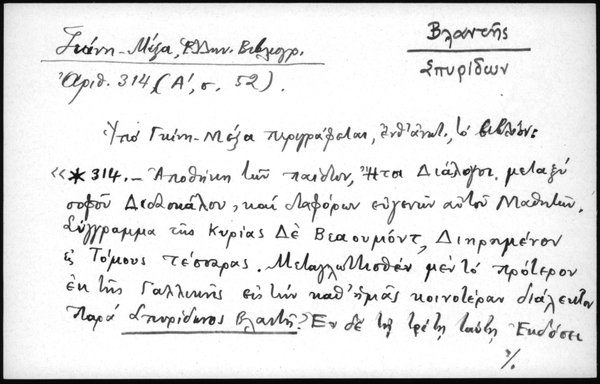 Γκίνη-Μέξα, Ἑλλην. Βιβλιογρ.
Ἀριθ. 314 (Α', σ. 52).
Βλαντῆς
Σπυρίδων
Ὑπό Γκίνη-Μέξα περιγράφεται, ἐνθ' ἀνωτ., τό βιβλίον:
«*314.- Ἀποθήκη τῶν παίδων, Ἤτοι Διάλογοι μεταξύ
σοφοῦ Διδασκάλου, καί διαφόρων εὐγενῶν αὐτοῦ Μαθητῶν.
Σύγγραμμα τῆς Κυρίας Δὲ Βεαουμόντ, Διηρημένον
εἰς Τόμους τέσσαρας. Μεταγλωττισθέν μέν τό πρότερον
ἐκ τῆς Γαλλικῆς εἰς τήν καθ' ἡμᾶς κοινοτέραν διάλεκτον
Παρά Σπυρίδωνος Βλαντῆ. Ἐν δέ τῇ τρίτῃ ταύτῃ Ἐκδόσει
./.